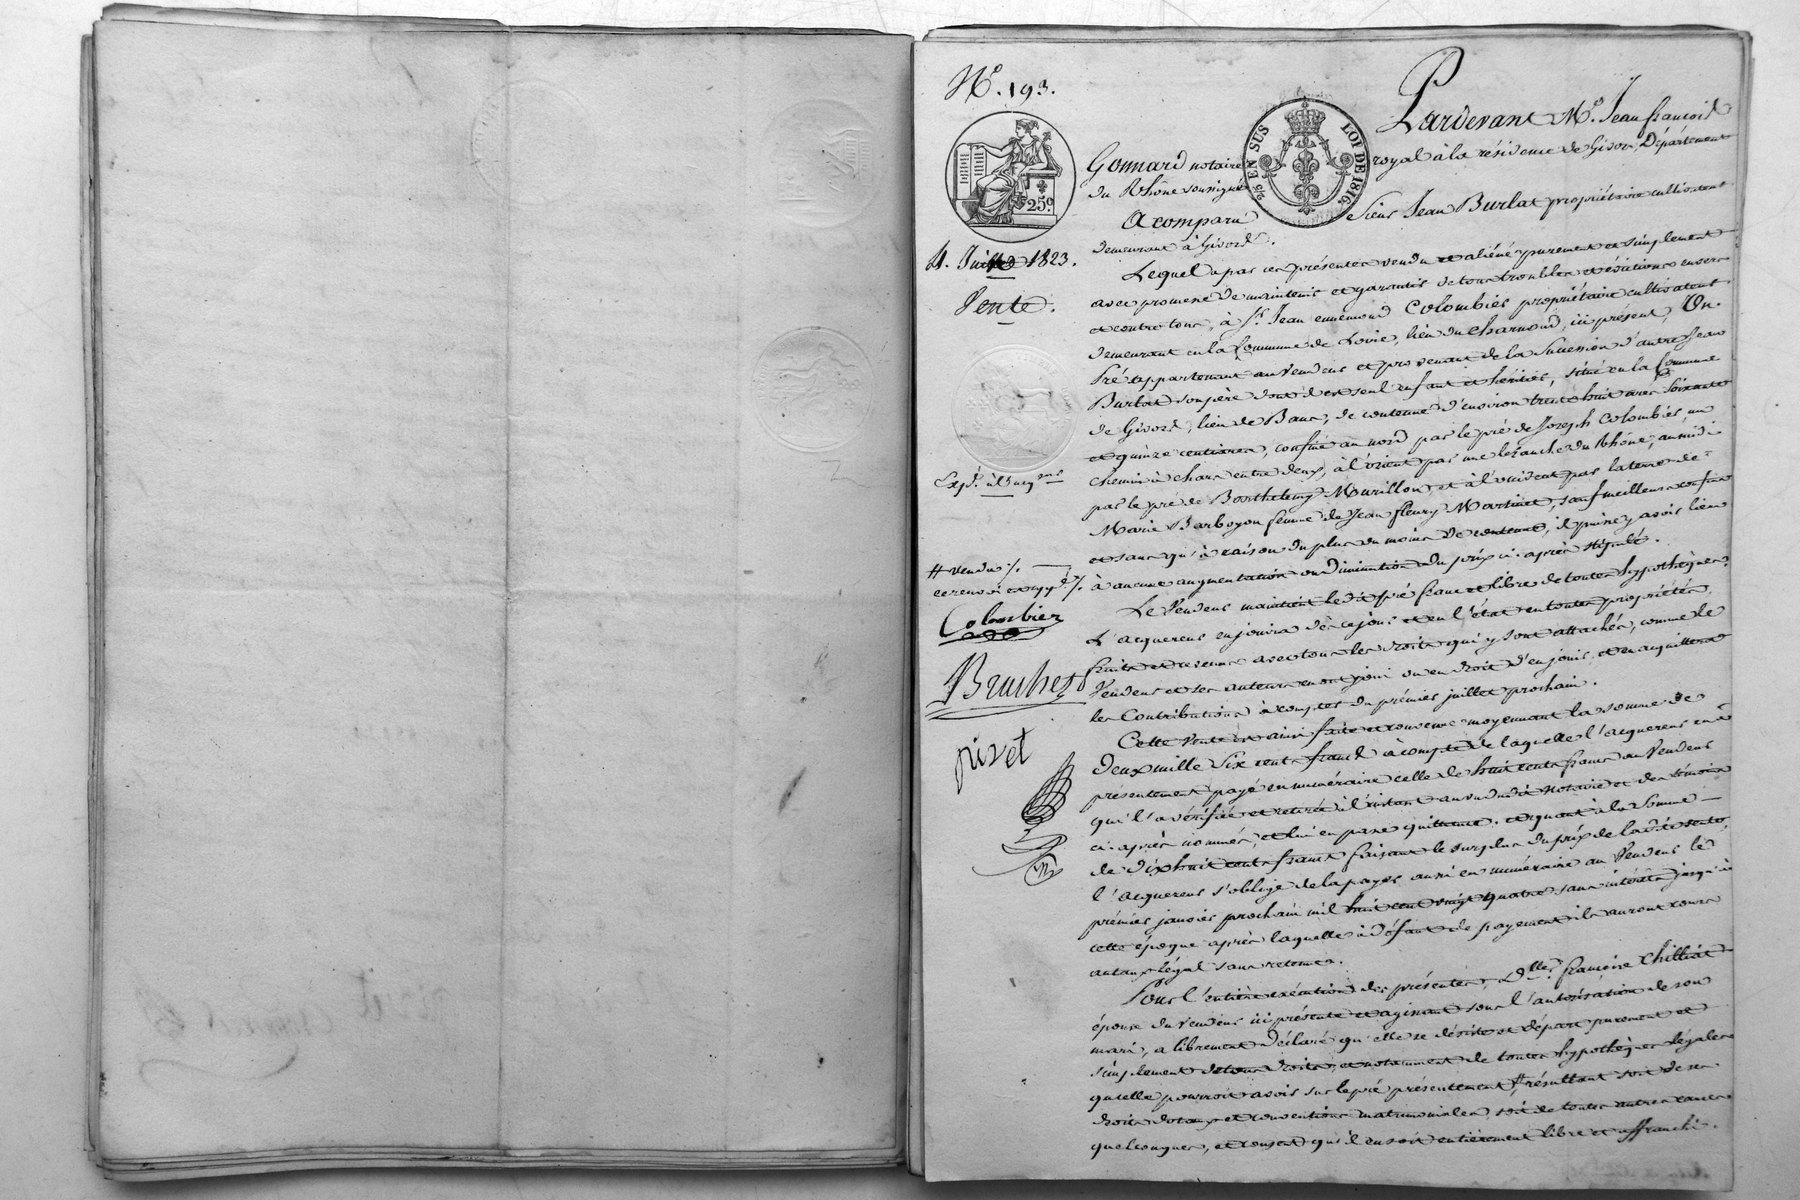 N.° 193.
Pardevant M.e Jean françois
Gonnard notaire royal à la résidence de Givors, Département
du Rhône soussigné
2/5 EN SUS
LOI DE 1816.
25c
A comparu Sieur Jean Burlat propriétaire cultivateur
demeurant à Givors.
4. Juillet 1823.
Vente.
Lequel a par ces présentes vendu et aliéné purement et simplement
avec promesse de maintenir et garantir de tous troubles et évictions envers
et contre tous, à S.r Jean ennemond Colombier propriétaire cultivateur
demeurant en la Commune de Loire, lieu du Charnoud, ici présent, Un
Pré appartenant au Vendeur et provenant de la Succession d'autre Jean
Burlat son père dont il est seul enfant et héritier, situé en la Commune
de Givors, lieu de Banc, de contenue d'environ trente huit ares soixante
et quinze centiares, confiné au nord par le pré de Joseph Colombier, un
chemin à chars entre deux, à l'orient par une lézanche du Rhône, au midi
par le pré de Barthelemy Mourillon, et à l'occident par la terre de
Marie Barboyon femme de Jean fleury Martinet, sauf meilleurs confins
et sans qu'à raison du plus ou moins de contenue, il puisse y avoir lieu
à aucune augmentation ou diminution du prix ci-après stipulé.
Exp.é à l'acq.eur
# vendu /.
ce renvoi app.é /.
Colombier
Bruchet
pivet
Le Vendeur maintient ledit pré franc et libre de toutes hypothèques.
L'acquereur en jouira dès ce jour et en l'état en toutes propriétés,
fruits et revenus avec tous les droits qui y sont attachés, comme le
Vendeur et ses auteurs en ont joui ou eu droit d'en jouir, et en acquittera
les Contributions à compter du prémier juillet prochain.
Cette Vente est ainsi faite et convenue moyennant la somme de
Deux mille Six cents francs à compte de laquelle l'acquereur en a
présentement payé en numéraire celle de huit cents francs au Vendeur
qui l'a vérifiée et retirée à l'instant au vu du dit notaire et des témoins
ci-après nommés, et lui en passe quittance. et quant à la Somme
de dix huit cents francs faisant le surplus du prix de la dite vente
l'acquereur s'oblige de la payer aussi en numéraire au Vendeur le
prémier janvier prochain mil huit cent vingt quatre sans intérêts jusqu'à
cette époque après laquelle à défaut de payement ils auront cours
au taux légal sans retenue.
Pour l'entière exécution des présentes, D.lle françoise Chilliat
épouse du Vendeur ici présente et agissant sous l'autorisation de son
mari, a librement déclaré qu'elle se désiste et départ purement et
simplement de tous droits, et notamment de toutes hypothèques légales
qu'elle pourroit avoir sur le pré présentement # résultant soit de ses
droits dotaux et conventions matrimoniales soit de toutes autres causes
quelconques, et consent qu'il en soit entièrement libre et affranchi.